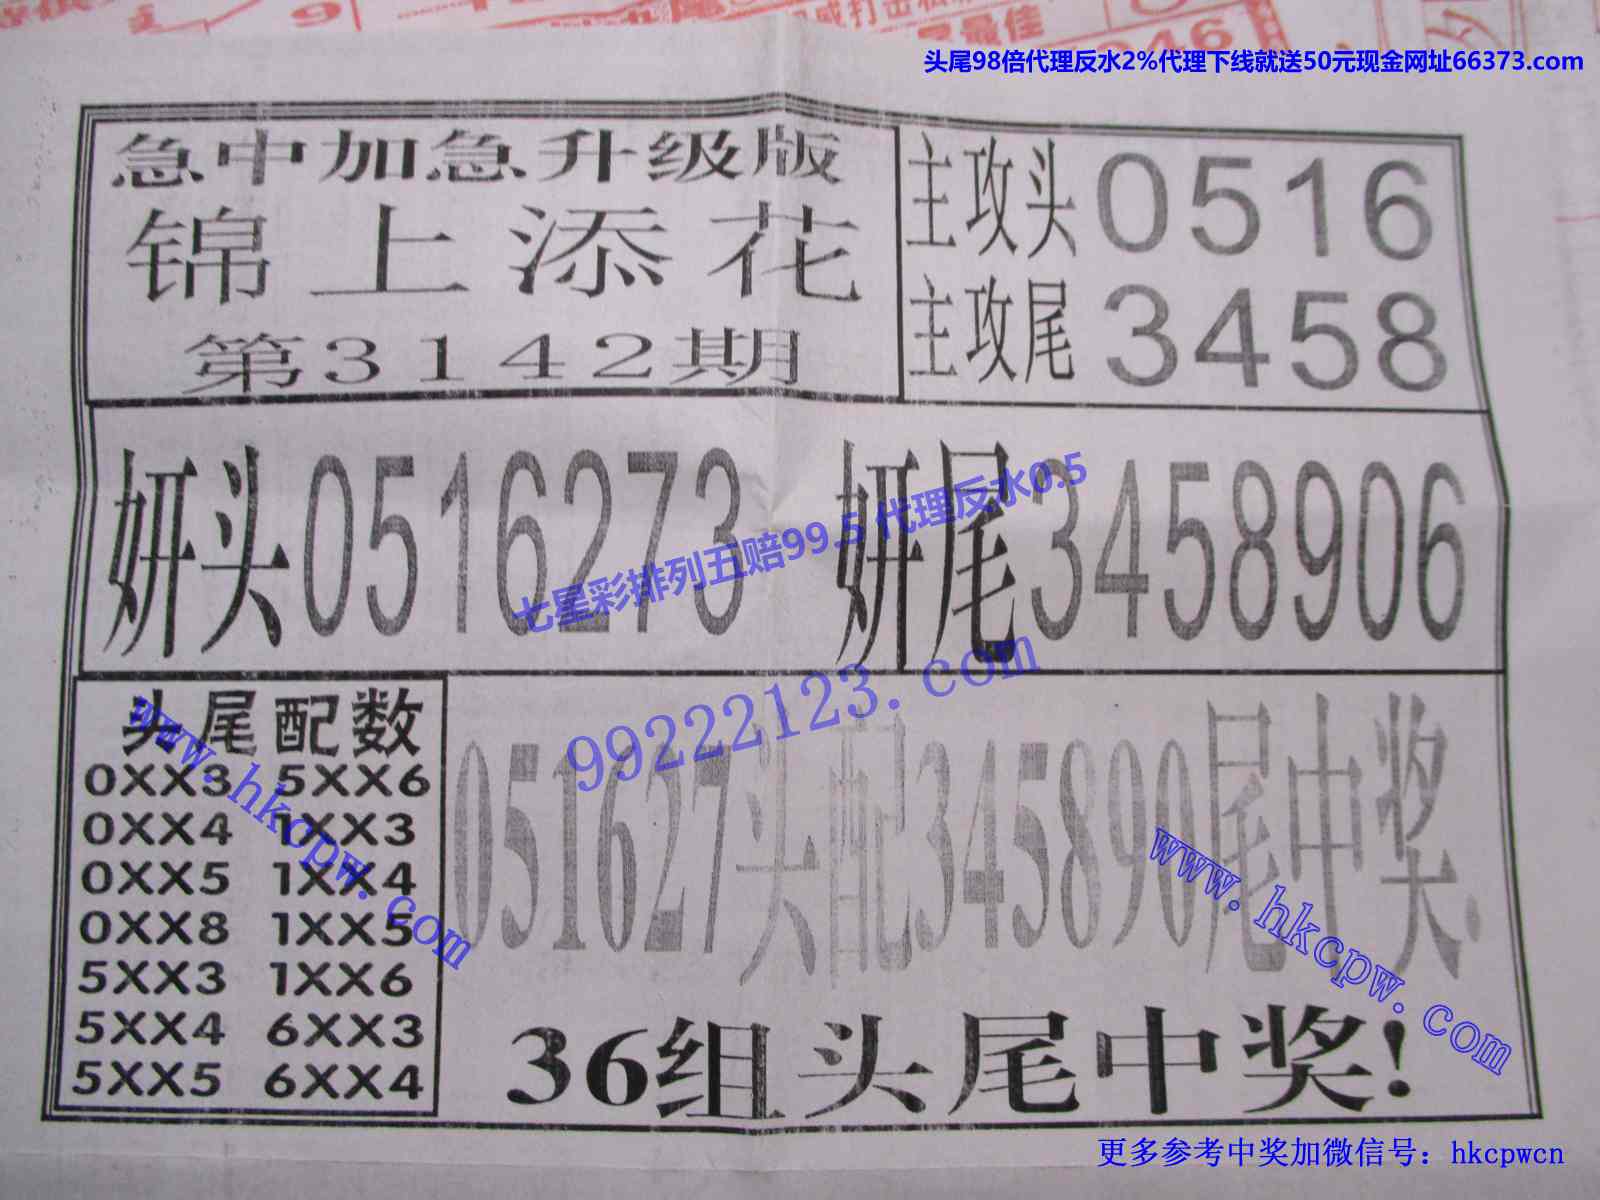 9
最佳
246
头尾98倍代理反水2%代理下线就送50元现金网址66373.com
急中加急升级版
锦上添花
第3142期
主攻头0516
主攻尾3458
妍头0516273
妍尾3458906
七星彩排列五赔99.5 代理反水0.5
99222123.com
头尾配数
0XX3 5XX6
0XX4 1XX3
0XX5 1XX4
0XX8 1XX5
5XX3 1XX6
5XX4 6XX3
5XX5 6XX4
www.hkcpw.com
051627头配345890尾中奖.
www.hkcpw.com
36组头尾中奖!
更多参考中奖加微信号：hkcpwcn